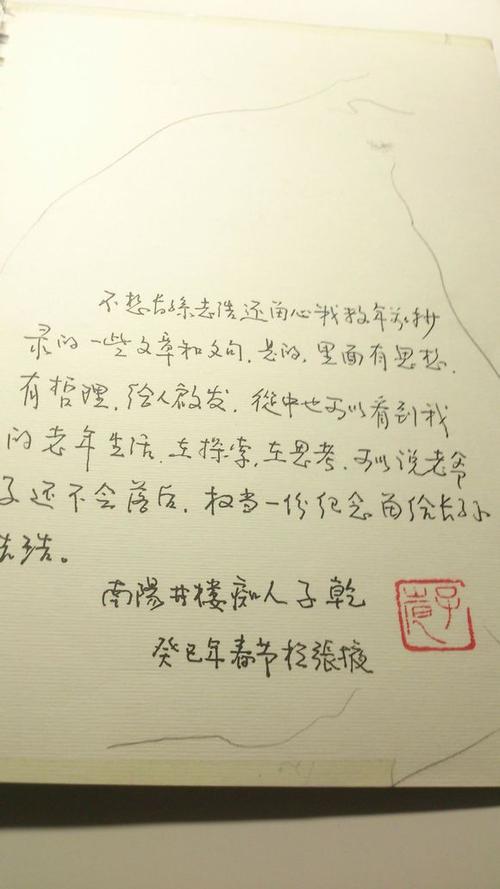 不想长孙志浩还留心我数年前抄
录的一些文章和文句。是的，里面有思想，
有哲理，给人启发，從中也可以看到我
的老年生活，在探索，在思考，可以说老爷
子还不会落后，权当一份纪念留给长孙
志浩。
南陽井楼痴人子乾
癸巳年春节於張掖